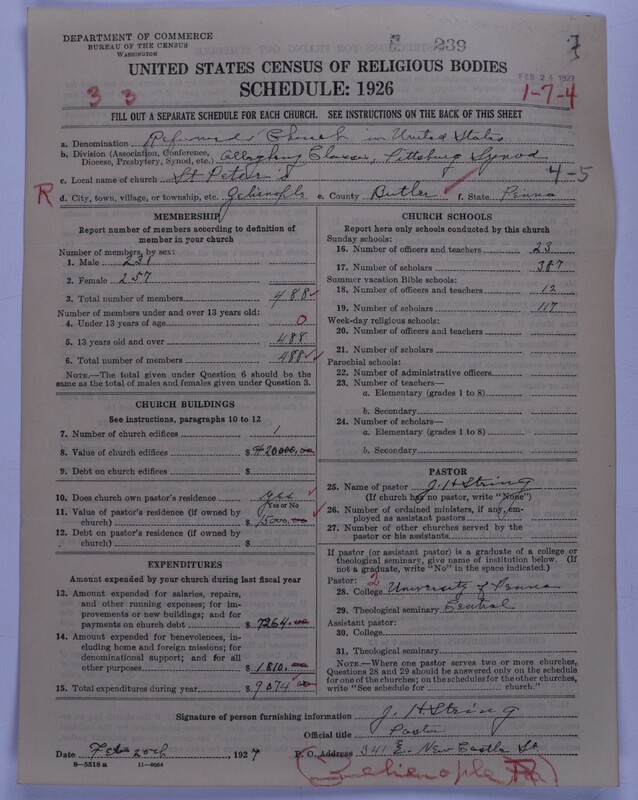 DEPARTMENT OF COMMERCE
BUREAU OF THE CENSUS
WASHINGTON
239
FEB 24 1927
UNITED STATES CENSUS OF RELIGIOUS BODIES
SCHEDULE: 1926
3 3
1-7-4
FILL OUT A SEPARATE SCHEDULE FOR EACH CHURCH. SEE INSTRUCTIONS ON THE BACK OF THIS SHEET
a. Denomination Reformed Church in United States
b. Division (Association, Conference, Diocese, Presbytery, Synod, etc.) Allegheny Classes, Pittsburg Synod
4-5
c. Local name of church St Peter's
R
d. City, town, village, or township, etc. Zelienople e. County Butler f. State Penna
MEMBERSHIP
Report number of members according to definition of member in your church
Number of members, by sex:
1. Male 231
2. Female 257
3. Total number of members 488
Number of members under and over 13 years old:
4. Under 13 years of age 0
5. 13 years old and over 488
6. Total number of members 488
NOTE.—The total given under Question 6 should be the same as the total of males and females given under Question 3.
CHURCH BUILDINGS
See instructions, paragraphs 10 to 12
7. Number of church edifices 1
8. Value of church edifices $ 20000.00
9. Debt on church edifices $
10. Does church own pastor's residence yes
Yes or No
11. Value of pastor's residence (if owned by church) $ 5000.00
12. Debt on pastor's residence (if owned by church) $
EXPENDITURES
Amount expended by your church during last fiscal year
13. Amount expended for salaries, repairs, and other running expenses; for improvements or new buildings; and for payments on church debt $ 7264.00
14. Amount expended for benevolences, including home and foreign missions; for denominational support; and for all other purposes $ 1810.00
15. Total expenditures during year $ 9074.00
CHURCH SCHOOLS
Report here only schools conducted by this church
Sunday schools:
16. Number of officers and teachers 23
17. Number of scholars 387
Summer vacation Bible schools:
18. Number of officers and teachers 12
19. Number of scholars 117
Week-day religious schools:
20. Number of officers and teachers
21. Number of scholars
Parochial schools:
22. Number of administrative officers
23. Number of teachers—
a. Elementary (grades 1 to 8)
b. Secondary
24. Number of scholars—
a. Elementary (grades 1 to 8)
b. Secondary
PASTOR
25. Name of pastor J. H String
(If church has no pastor, write "None")
26. Number of ordained ministers, if any, employed as assistant pastors
27. Number of other churches served by the pastor or his assistants
If pastor (or assistant pastor) is a graduate of a college or theological seminary, give name of institution below. (If not a graduate, write "No" in the space indicated.)
Pastor: 2
28. College University of Penna
29. Theological seminary Central
Assistant pastor:
30. College
31. Theological seminary
NOTE.—Where one pastor serves two or more churches, Questions 28 and 29 should be answered only on the schedule for one of the churches; on the schedules for the other churches, write "See schedule for church."
Signature of person furnishing information J. H String
Official title Pastor
Date Feb 20th, 1927 P. O. Address 341 E. New Castle St
8-5518 a 11-9064
Zelienople Pa